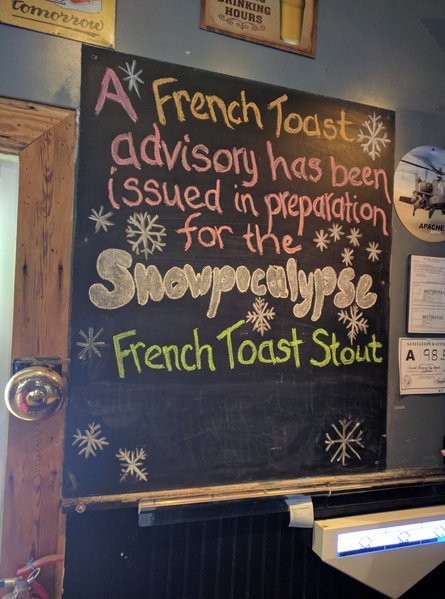 tomorrow
DRINKING
HOURS
A French Toast
advisory has been
issued in preparation
for the
Snowpocalypse
French Toast Stout
APACHE
SANITATION RATING
A 98.5